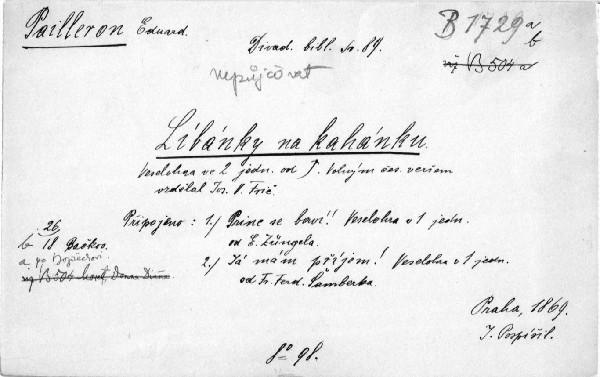 Pailleron Eduard.
B 1729 a
b
Divad. bibl. sv. 89.
nepůjčovat
Líbánky na kahánku.
Veselohra ve 2 jedn. od P. Volným čes. veršem
vzdělal Jos. V. Frič.
Připojeno: 1.) Princ se baví! Veselohra v 1 jedn.
od E. Züngela.
2.) Já mám příjem! Veselohra v 1 jedn.
od Fr. Ferd. Šamberka.
26
b 18
a po
B 504
Praha, 1869.
J. Pospíšil.
8° 98.